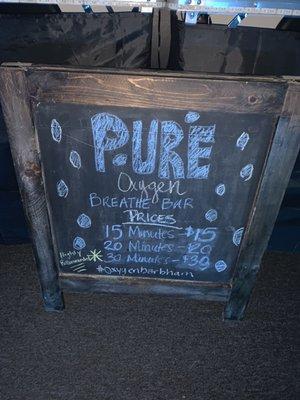 PURE
Oxygen
BREATHE BAR
PRICES
15 Minutes - $15
20 Minutes - $20
Highly
Recommended
30 Minutes - $30
#Oxygenbarbham